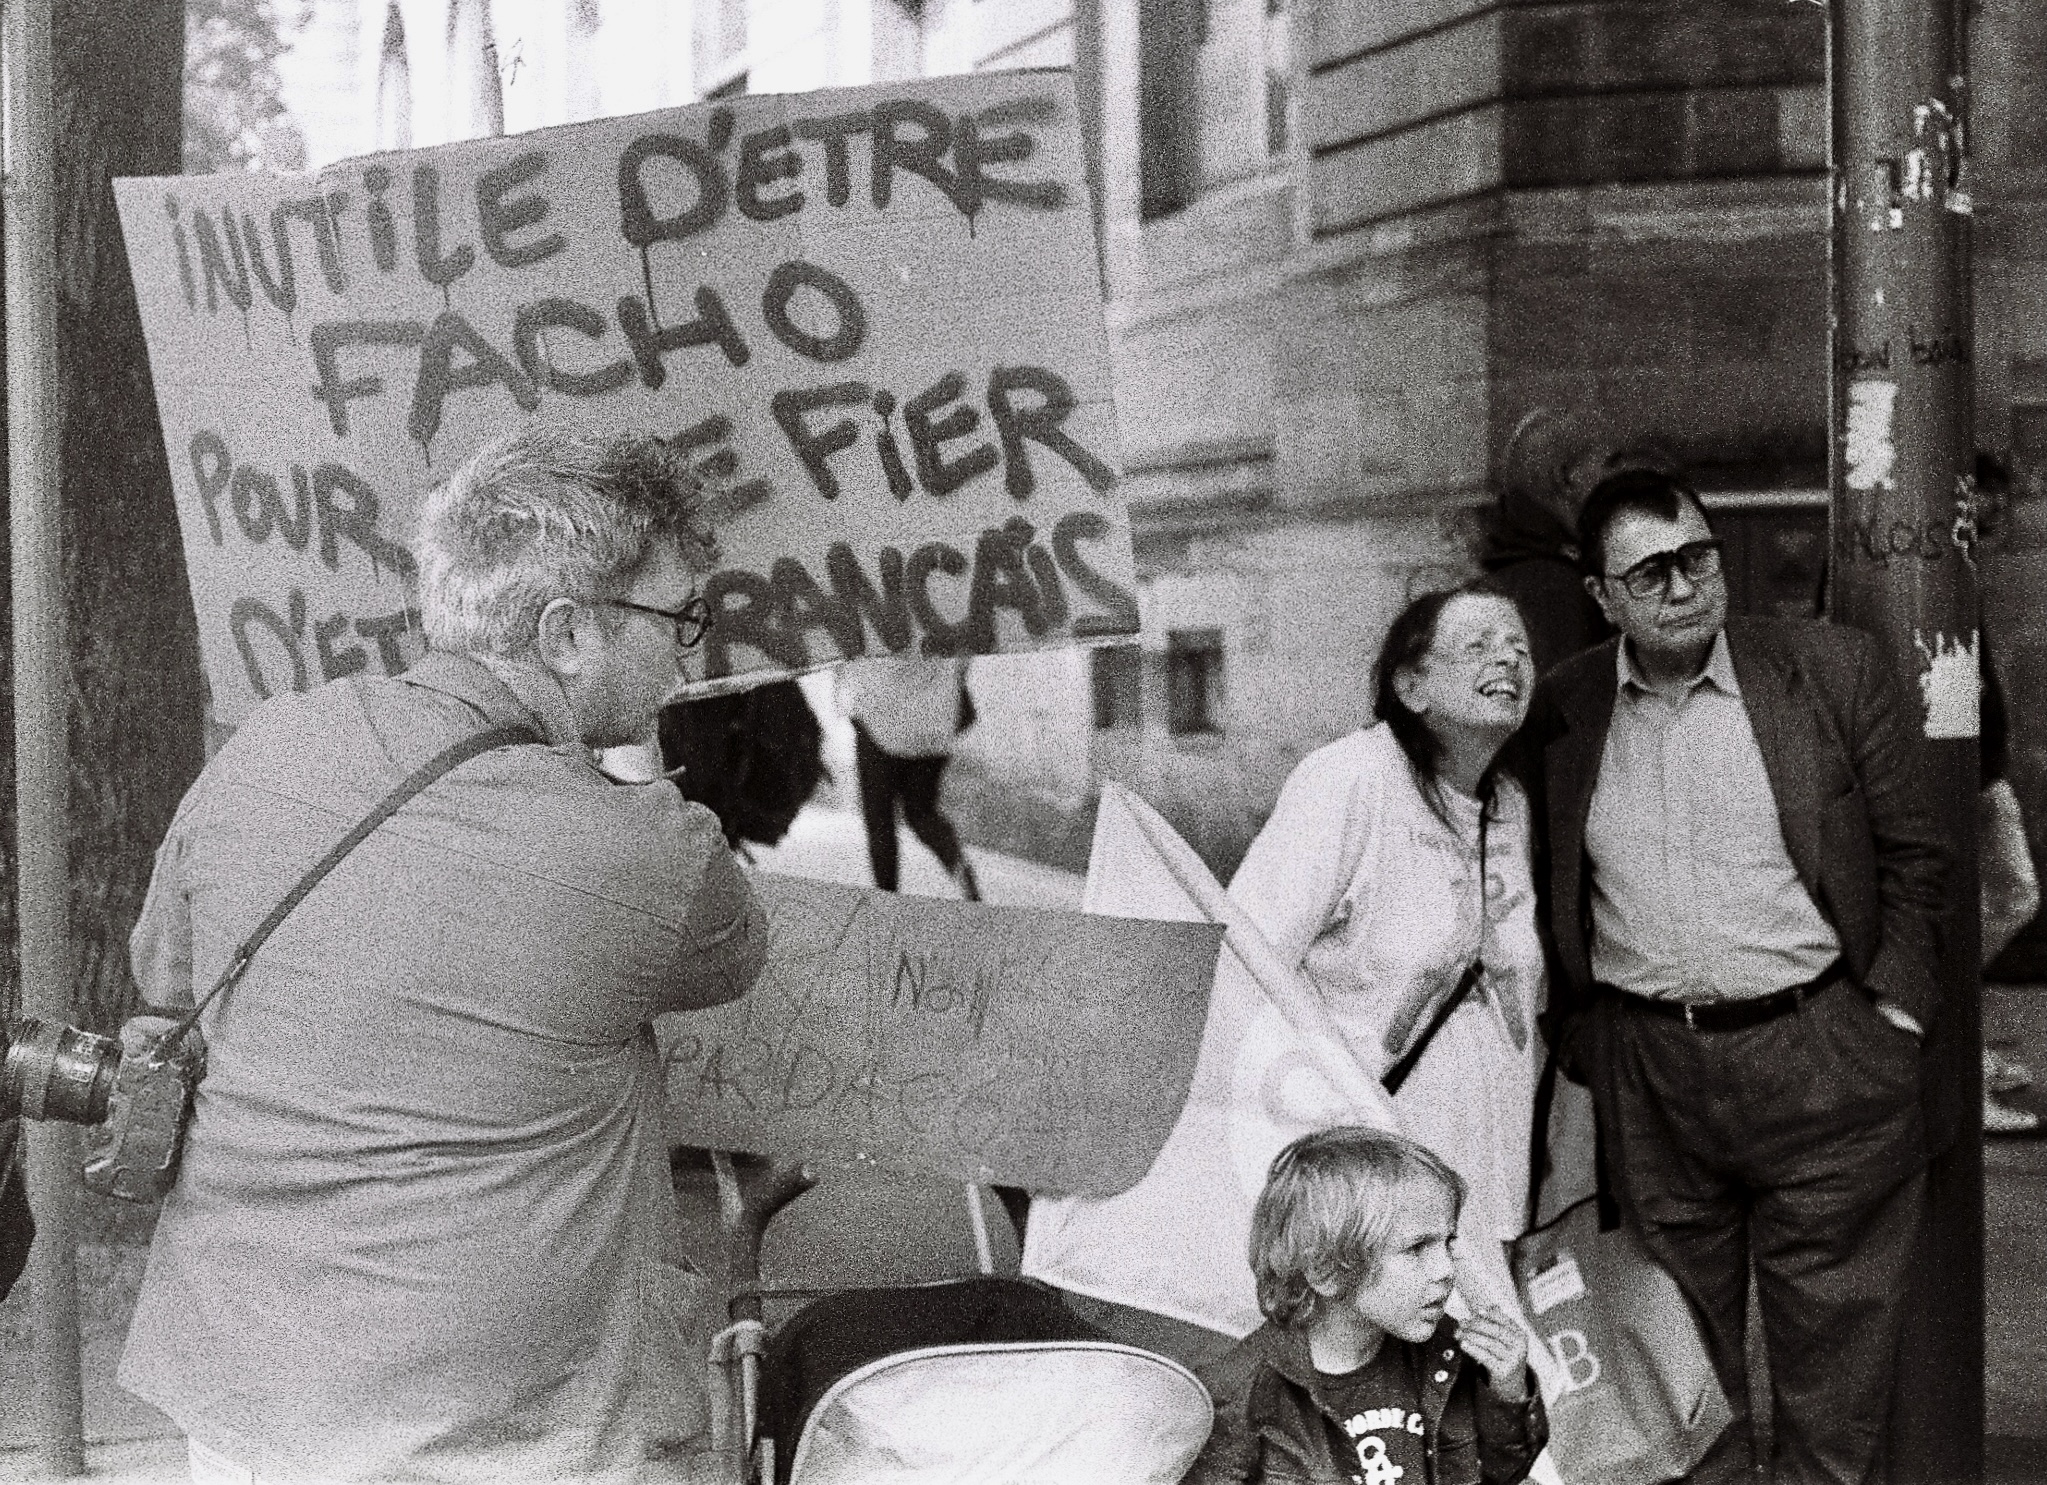 iNUTiLE D'ETRE
FACHO
POUR E FiER
D'ET RANÇAiS
NON
B